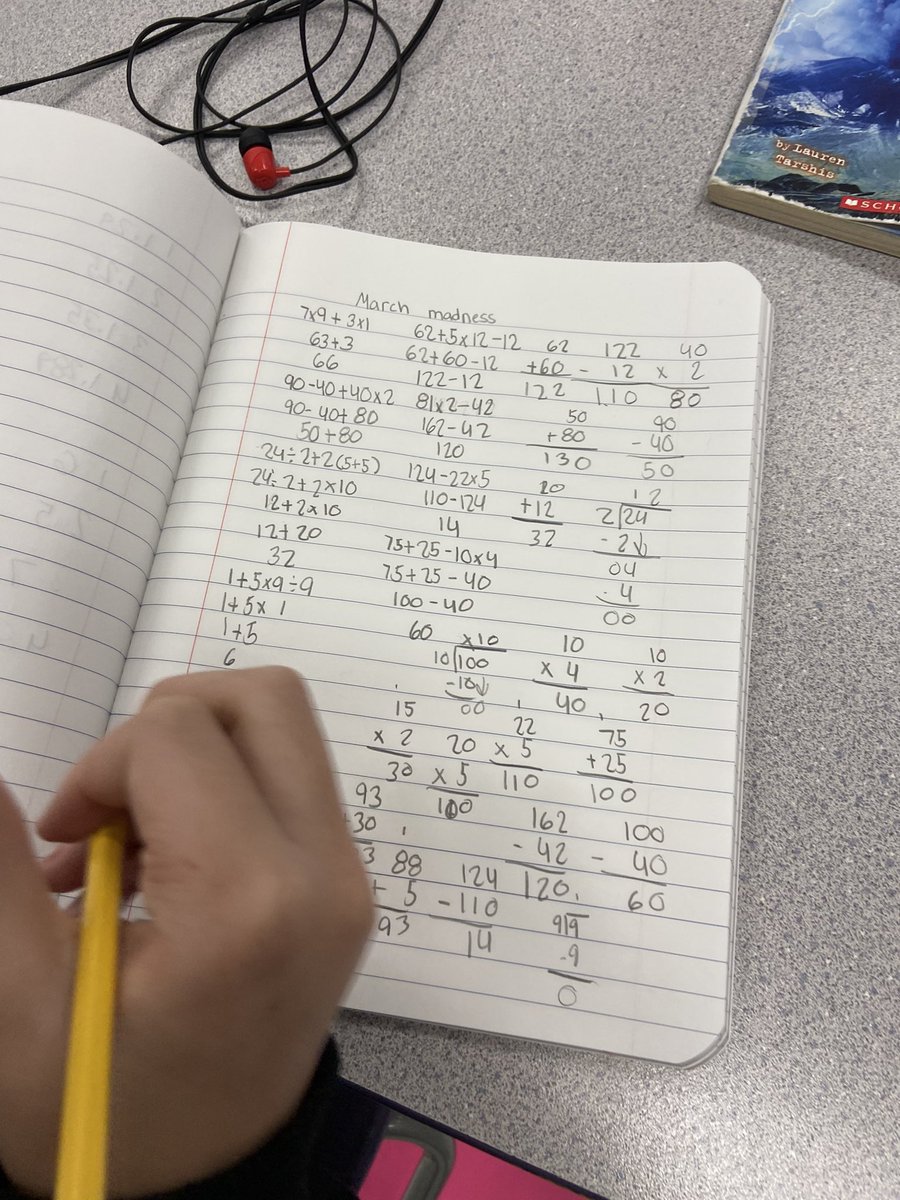 by Lauren
Tarshis
SCHO
March madness
7x9+3x1
63+3
66
90-40+40x2
90-40+80
50+80
24÷2+2(5+5)
24÷2+2x10
12+2x10
12+20
32
1+5x9÷9
1+5x1
1+5
6
62+5x12-12
62+60-12
122-12
81x2-42
162-42
120
124-22x5
110-124
14
75+25-10x4
75+25-40
100-40
60
62 122 40
+60 - 12 x 2
122 110 80
50 90
+80 - 40
130 50
20 12
+12 2|24
32 -2↓
04
-4
00
x10 10 10
10|100 x 4 x 2
-10↓ 40 20
00
15 22 75
x 2 20 x 5 +25
30 x 5 110 100
100
93 162 100
+30 - 42 - 40
3 120 60
88 124
+ 5 -110
93 14
9|9
-9
0